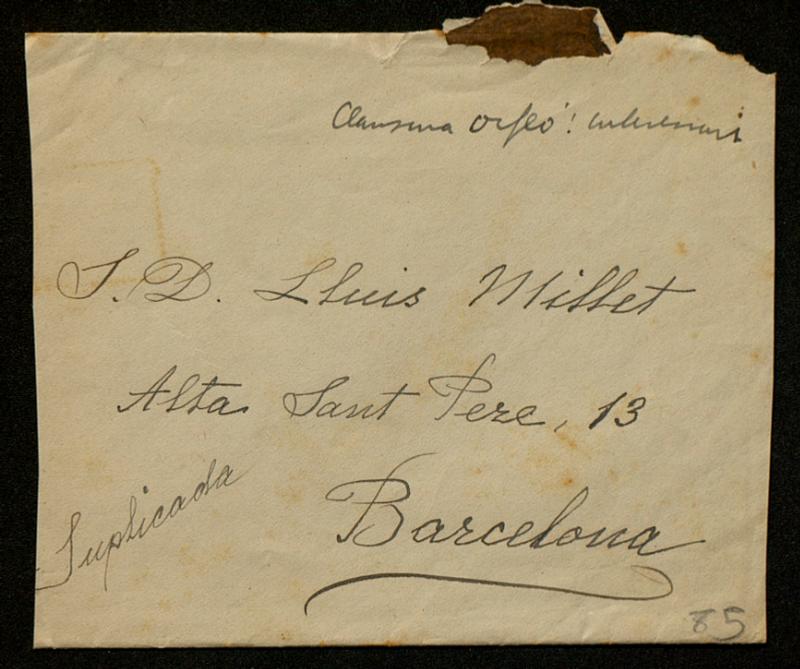 Clausura Orfeó! interessant
S. D. Lluis Millet
Alta Sant Pere, 13
Suplicada
Barcelona
85